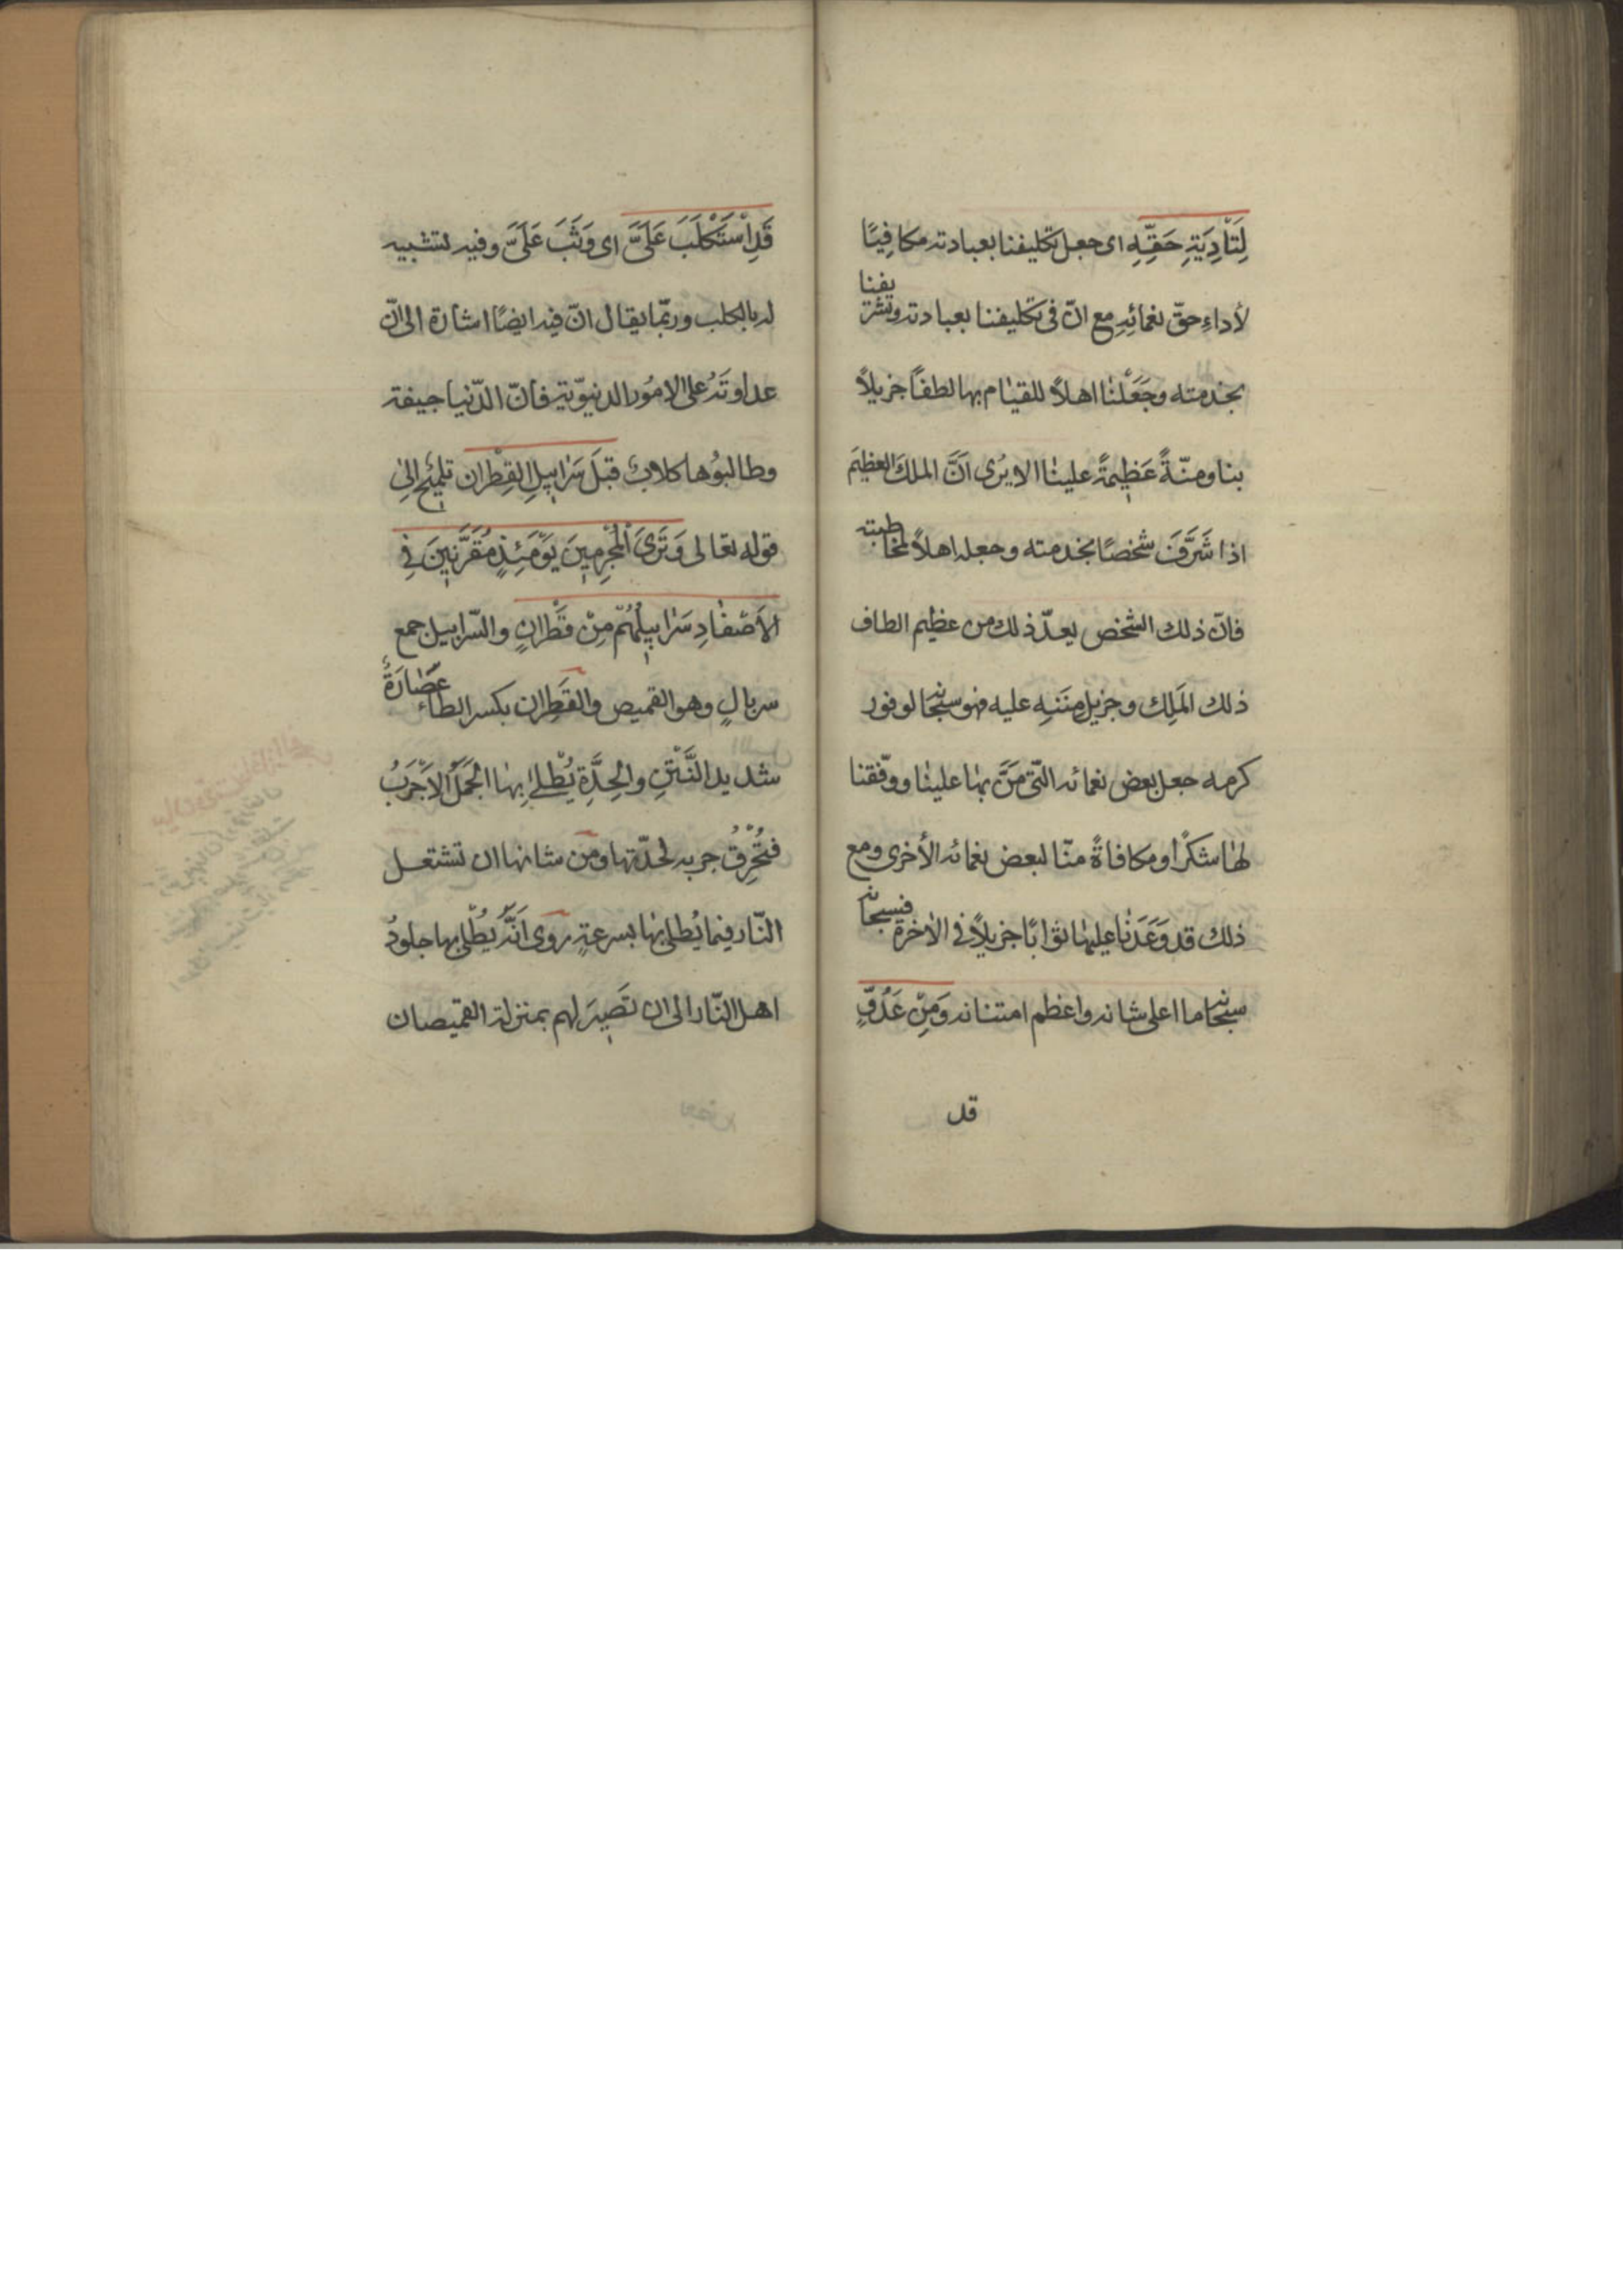 لِتَأدِيَةِ حَقِّهِ اى جعل تكليفنا بعبادته مكافِيًا
لأداءِ حقّ نعمائِهِ مع انّ فى تكليفنا بعبادته وتشريفنا
بخدمته وجَعَلْنا اهلاً للقيام بها لطفًا جزيلاً
بنا ومنّةً عَظِيمةً علينا الا يُرى اَنَّ الملكَ العظيمَ
اذا شَرَّفَ شخصًا بخدمته وجعله اهلاً لمخاطبته
فانّ ذلك الشخص يعدّ ذلك من عظيم الطاف
ذلك المَلِك وجزيل مِنَنِهِ عليه فهو سبحانه لوفور
كرمه جعل بعض نعمائه الّتى مَنَّ بها علينا ووفّقنا
لها شكرًا ومكافاةً منّا لبعض نعمائه الأخرى ومع
ذلك قد وَعَدَنا عليها ثوابًا جزيلاً فى الآخرة فسبحانه
سبحانه ما اعلى شانه واعظم امتنانه وَمِنْ عَدُوٍّ
قد
قَدِ اسْتَكْلَبَ عَلَىَّ اى وَثَبَ عَلَىَّ وفيه تشبيه
له بالكلب وربّما يقال انّ فيه ايضًا اشارة الى انّ
عداوتَهُ على الامُور الدنيوّية فانّ الدّنيا جيفة
وطالبُوها كلابٌ قبلَ سَرابِيلِ القِطْران تلميْحٌ اِلىٰ
قوله تعالى وَتَرَى الْمُجْرِمِينَ يَوْمَئِذٍ مُقَرَّنِينَ فِى
الاَصْفادِ سَرابِيلُهُمْ مِنْ قَطْرانٍ والسّرابيل جمع
سربالٍ وهو القميص والقَطِران بكسر الطاء عُصَارَةٌ
شديد النَّتْنِ والحِدَّةِ يُطْلىٰ بِهَا الجَمَلُ الاَجْرَبُ
فتُحْرِقُ جربه لحدّتها ومن شانها ان تشتعل
النّار فيما يُطلى بها بسرعةٍ روى اَنَّهُ يُطْلى بها جلودُ
اهل النّار الى ان تَصِيرَ لهم بمنزلة القميصان